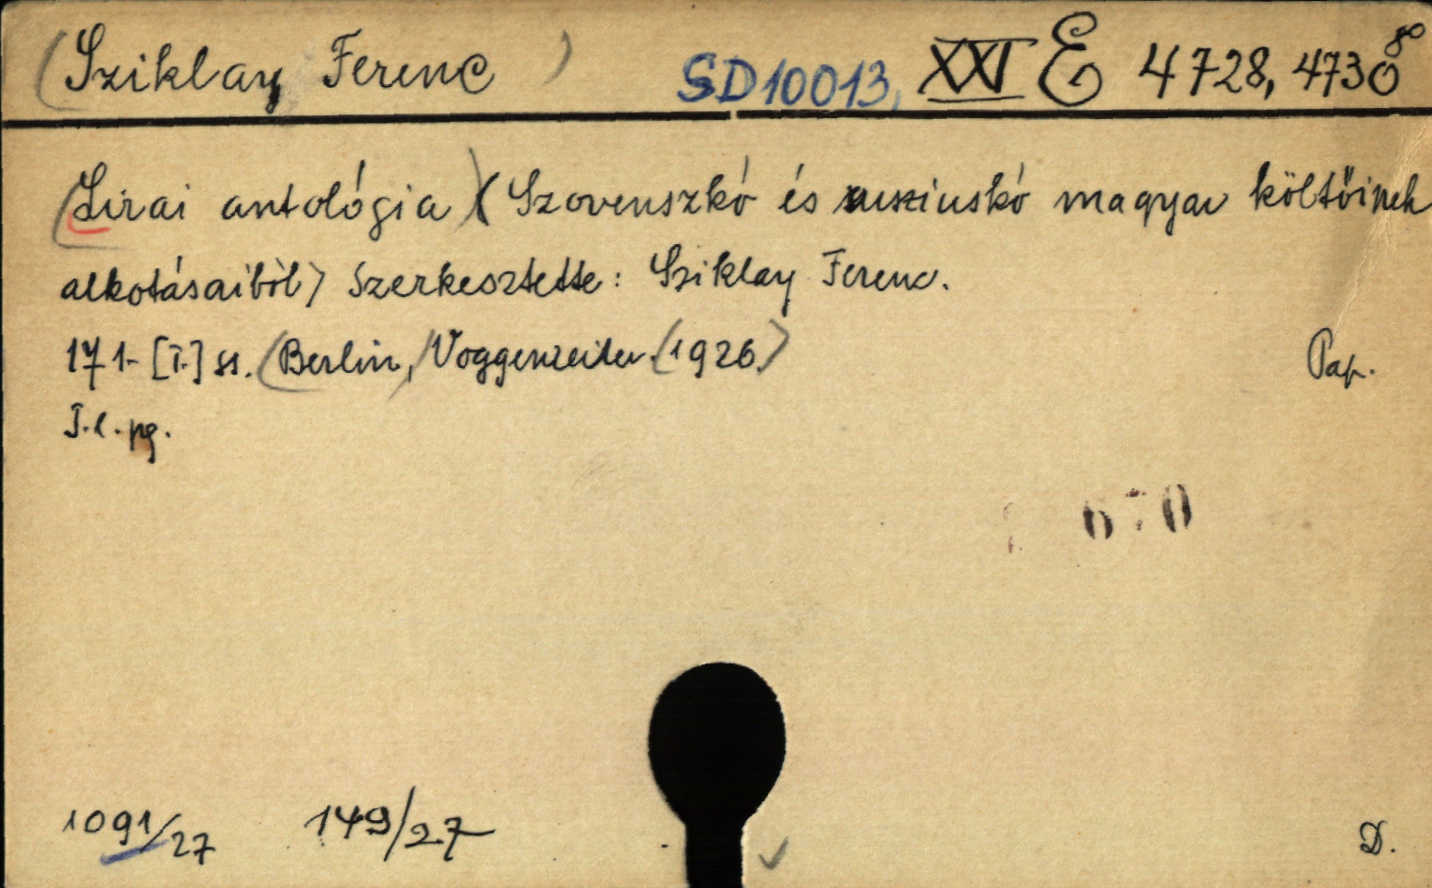 (Sziklay Ferenc) SD10013, XXI E 4728, 4730 8°
(Lirai antológia) (Szovenszkó és ruszinskó magyar költőinek
alkotásaiból) Szerkesztette: Sziklay Ferenc.
171-[1.] ss. (Berlin,) Voggenreiter (1926.) Pap.
T.l. pg.
670
1091/27 149/27 D.